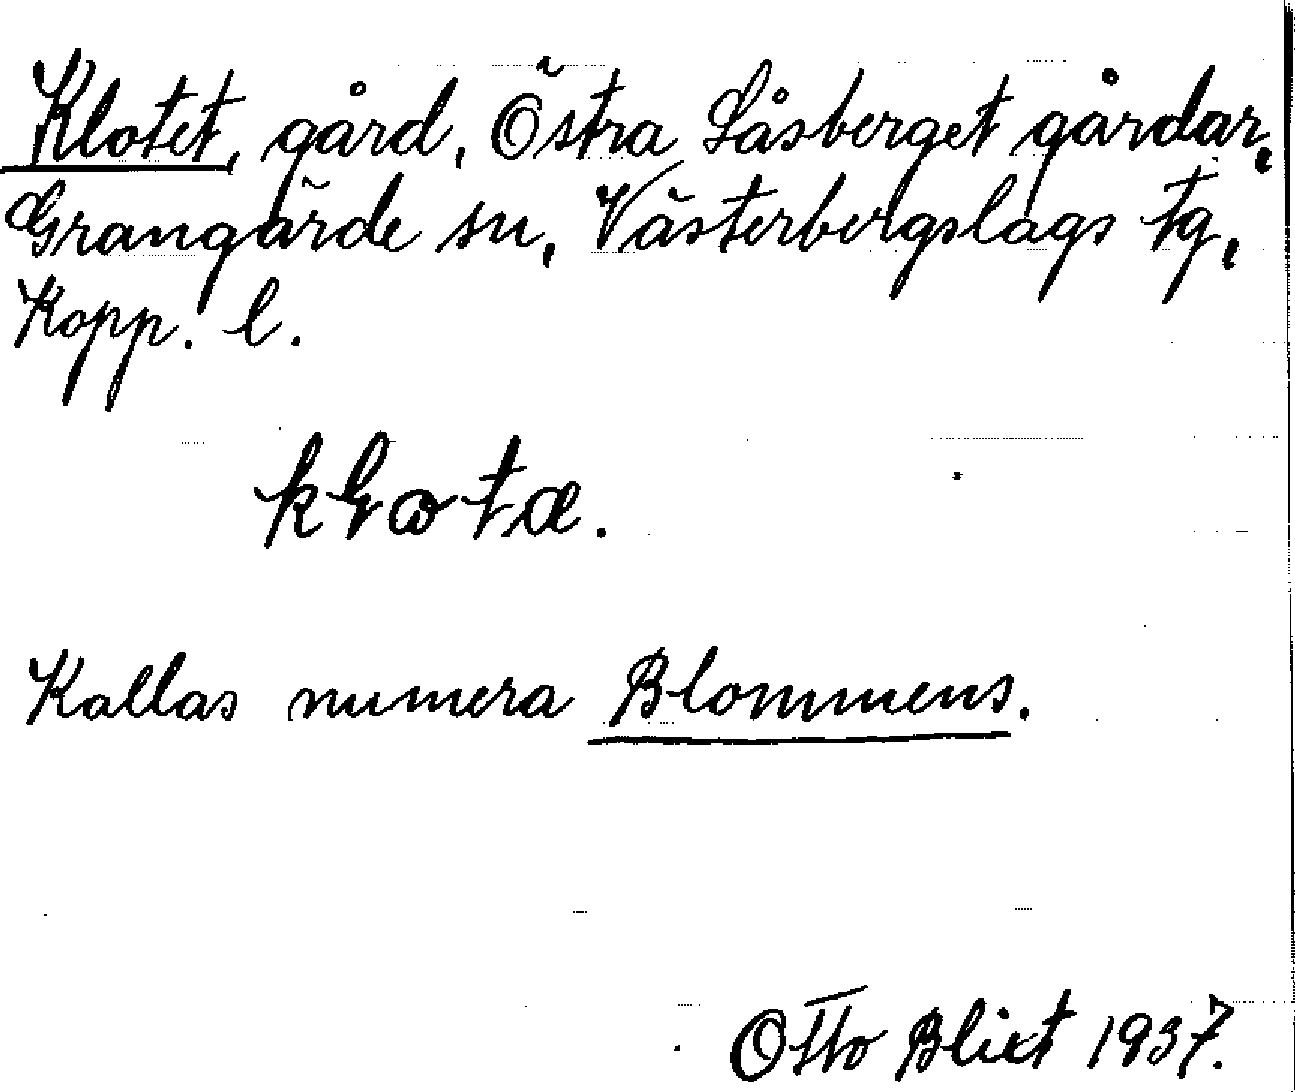 Klotet, gård, Östra Låsberget gårdar,
Grangärde sn, Västerbergslags tg,
Kopp. l.
kɬωtæ.
Kallas numera Blommens.
Otto Blixt 1937.